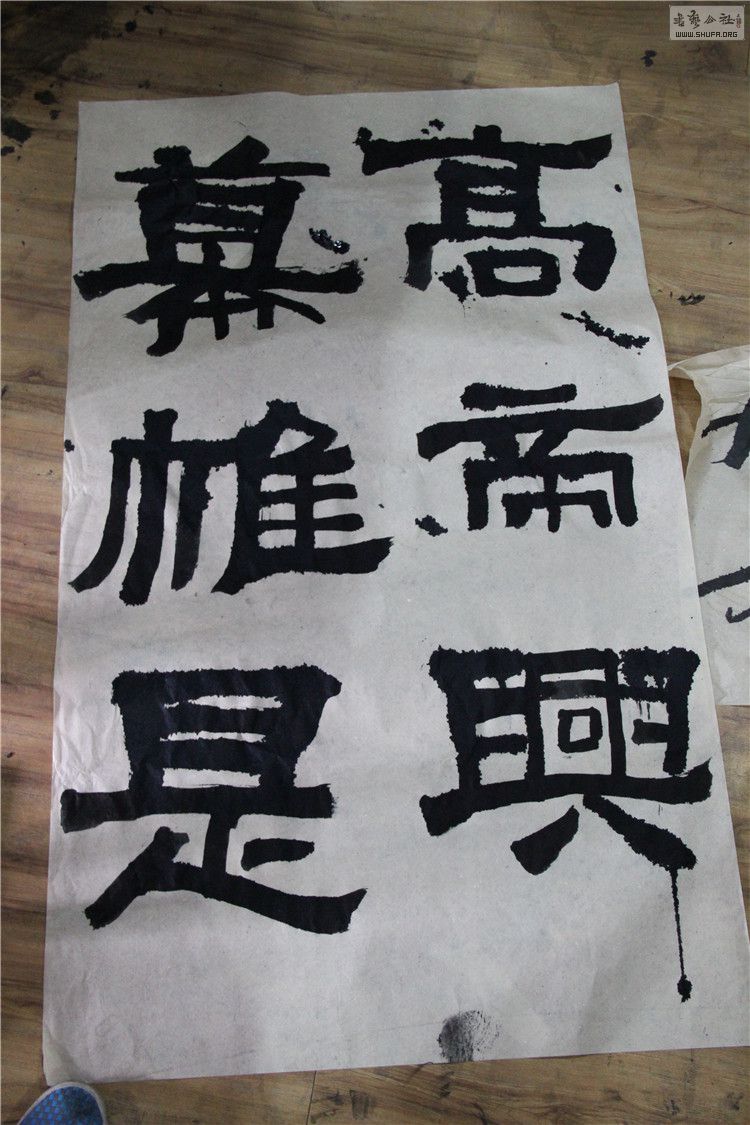 高帝興
幕帷是
書藝公社
WWW.SHUFA.ORG